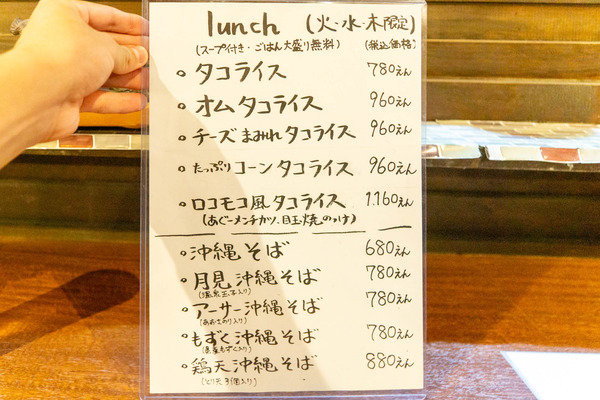 lunch (火・水・木限定)
(スープ付き・ごはん大盛り無料) (税込価格)
タコライス 780えん
オムタコライス 960えん
チーズまみれタコライス 960えん
たっぷりコーンタコライス 960えん
ロコモコ風タコライス 1.160えん
(あぐーメンチカツ、目玉焼のっけ)
沖縄そば 680えん
月見沖縄そば 780えん
(温泉玉子入り)
アーサー沖縄そば 780えん
(あおさのり入り)
もずく沖縄そば 780えん
鶏天沖縄そば 880えん
(とり天3個入り)